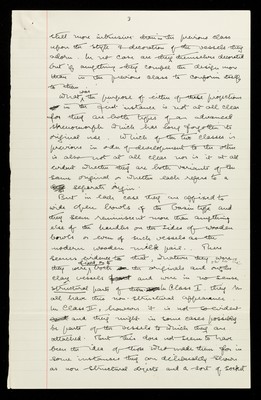 3
still more intrusive than in the previous class
upon the style & decoration of the vessels they
adorn. In no case are they themselves decorated
but if anything they compel the design more
than in the previous class to conform
to them.
What was the purpose of either of these projections
in the first instance is not at all clear
for they are both types of an advanced
skeuomorph which has long forgotten its
original use. Which of the two classes is
previous in order of development to the other
is also not at all clear nor is it at all
evident whether they are both variants of the
same original or whether each refers to a
separate origin.
But in each case they are affixed to
wide open bowls of the basin type and
they seem reminiscent more than anything
else of the handles on the sides of wooden
bowls or even of such vessels as the
modern wooden milk pail. There
seems evidence to that, whatever they were,
they were both on the originals and on the
clay vessels and were in no sense
structural parts of them. In Class I, they
all have this non-structural appearance.
In Class II, however it is not so evident
and they might in some cases possibly
be parts of the vessels to which they are
attached. But this does not seem to have
been the idea of those who made them for in
some instances they are deliberately shown
as non-structural objects and a sort of socket